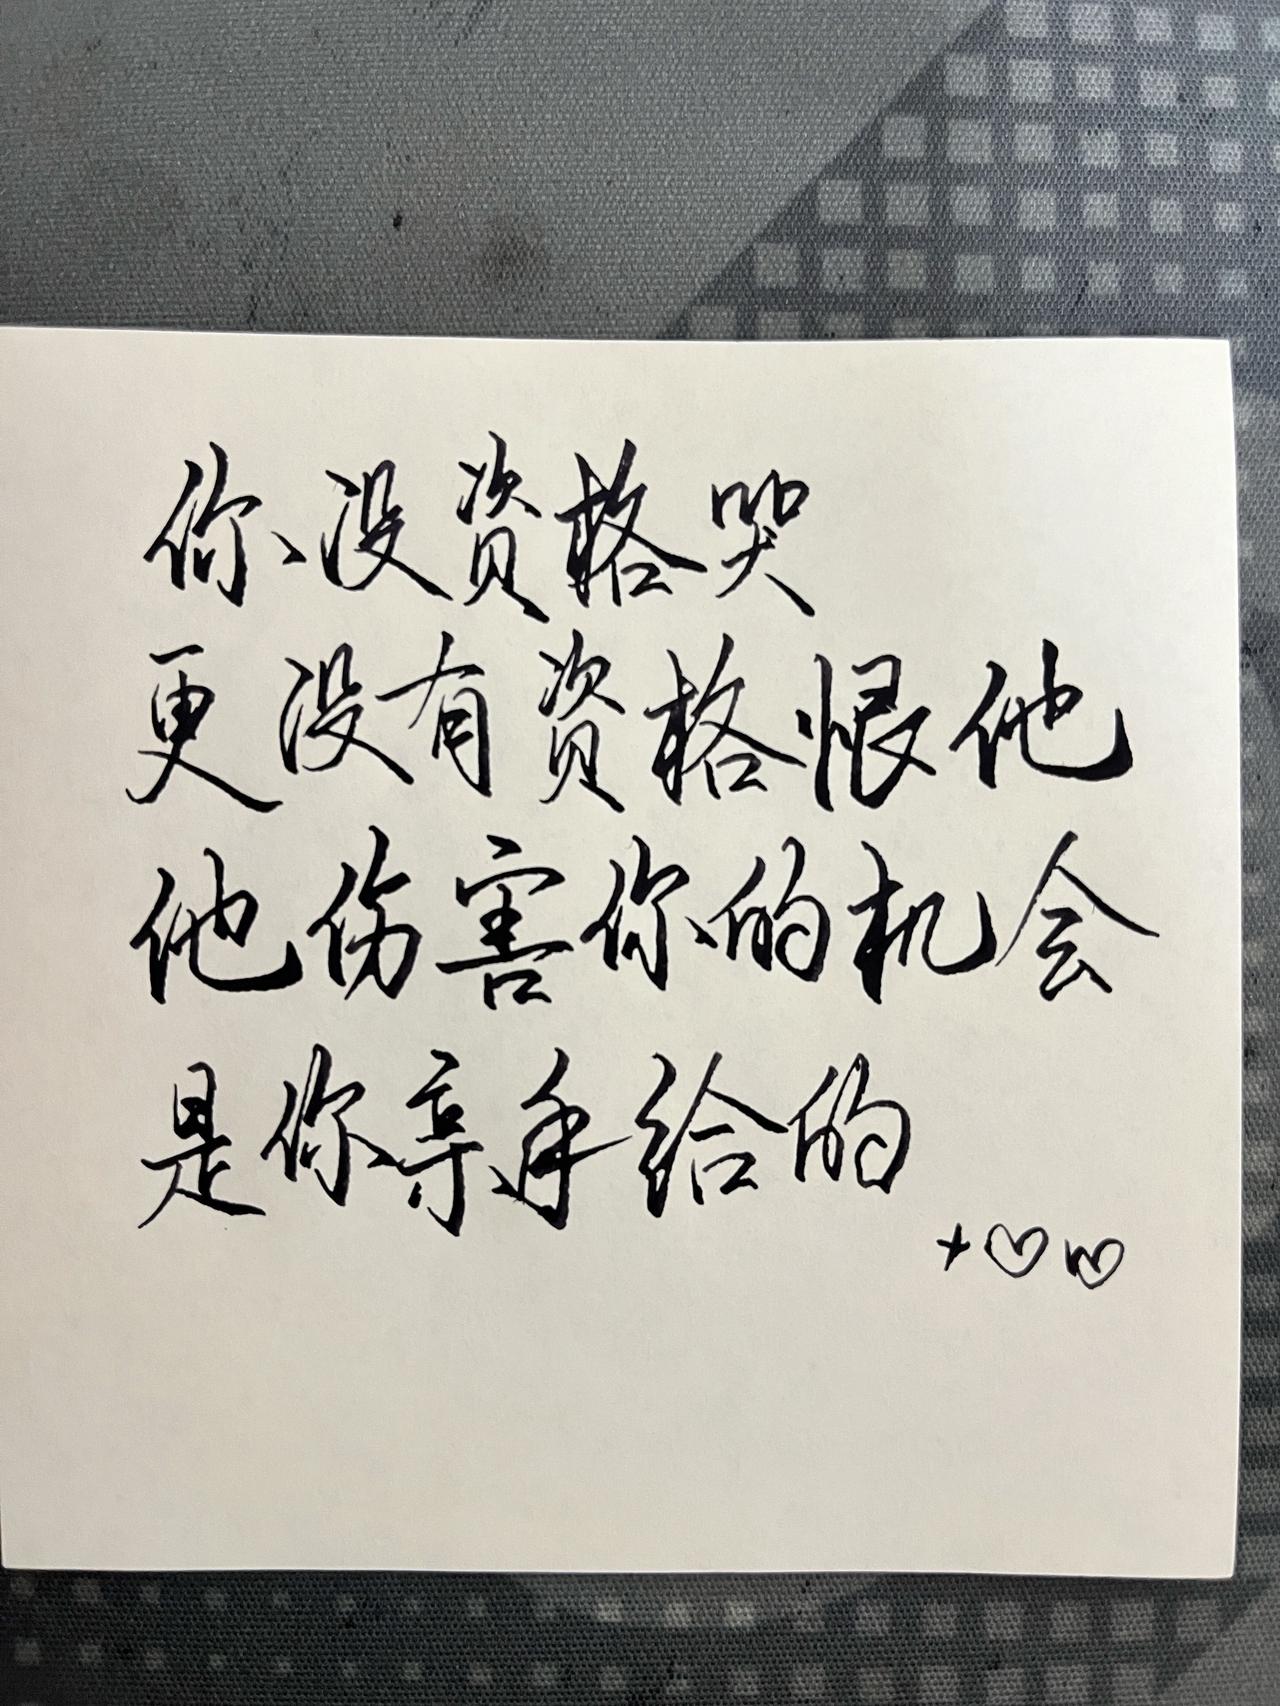 你没资格哭
更没有资格恨他
他伤害你的机会
是你亲手给的